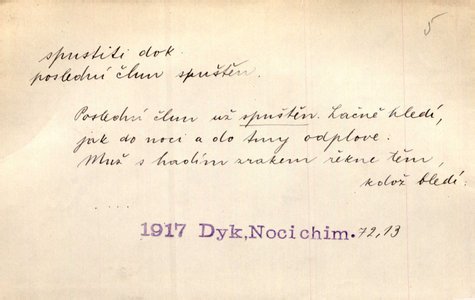 5
spustiti dok.
poslední člun spuštěn.
Poslední člun už spuštěn. Lačně hledí,
jak do noci a do tmy odplove.
Muž s hadím zrakem řekne těm,
kdož hledí:
....
1917 Dyk,Noci chim. 72,13